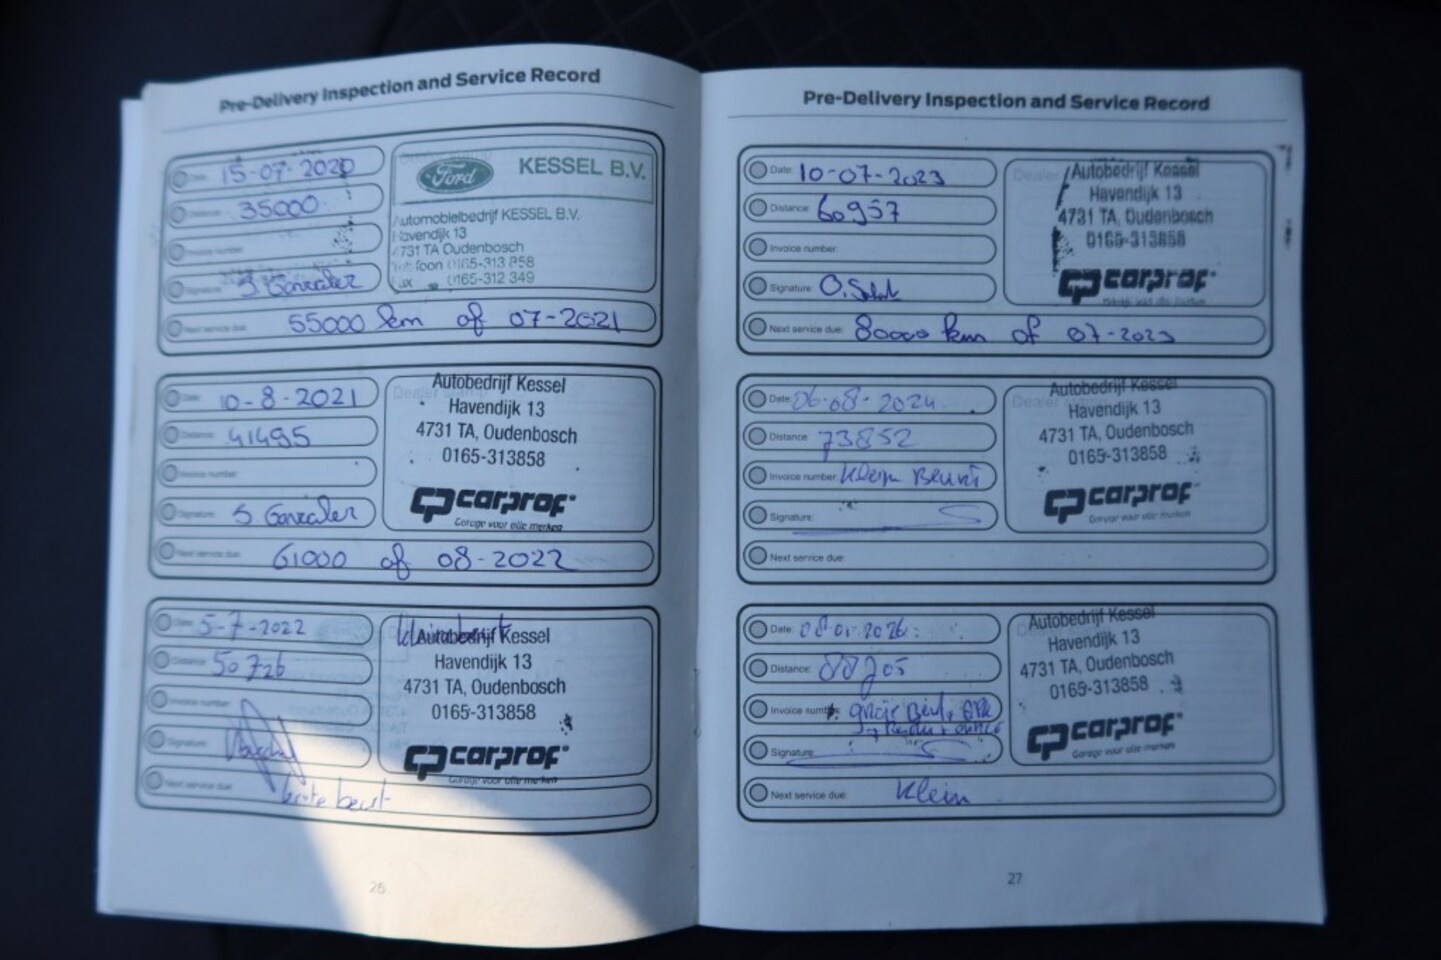 Pre-Delivery Inspection and Service Record
Date: 15-07-2020
Distance: 35000
Invoice number:
Signature: S. Gonzalez
Next service due: 55000 km of 07-2021
Ford KESSEL B.V.
Automobielbedrijf KESSEL B.V.
Havendijk 13
4731 TA Oudenbosch
Telefoon 0165-313 858
Fax 0165-312 349
Date: 10-8-2021
Distance: 41495
Invoice number:
Signature: S. Gonzalez
Next service due: 61000 of 08-2022
Autobedrijf Kessel
Havendijk 13
4731 TA, Oudenbosch
0165-313858
CP carprof
Garage voor alle merken
Date: 5-7-2022
Distance: 50726
Invoice number:
Signature:
Next service due: beurt
Autobedrijf Kessel
Havendijk 13
4731 TA, Oudenbosch
0165-313858
CP carprof
Garage voor alle merken
26
Pre-Delivery Inspection and Service Record
Date: 10-07-2023
Distance: 60957
Invoice number:
Signature:
Next service due: 80000 km of 07-2023
Autobedrijf Kessel
Havendijk 13
4731 TA, Oudenbosch
0165-313858
CP carprof
Date: 06-08-2024
Distance: 73852
Invoice number: Klein Beurt
Signature:
Next service due:
Autobedrijf Kessel
Havendijk 13
4731 TA, Oudenbosch
0165-313858
CP carprof
Garage voor alle merken
Date: 08-01-2026
Distance: 88705
Invoice number:
Signature:
Next service due: Klein
Autobedrijf Kessel
Havendijk 13
4731 TA, Oudenbosch
0165-313858
CP carprof
Garage voor alle merken
27